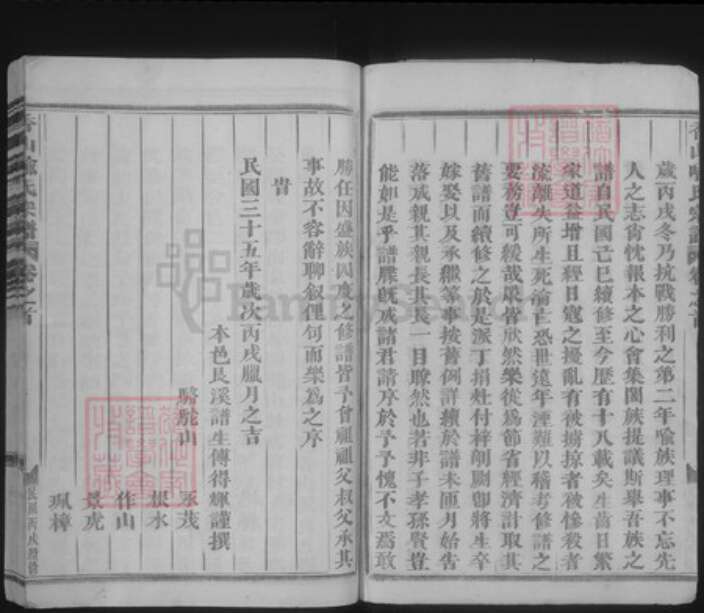 歲丙戌冬乃抗戰勝利之第二年喻族理事不忘先
人之志肯忱報本之心會集闔族提議斯舉吾族之
譜自民國己巳續修至今歷有十八載矣生齒日繁
家道益增且經日寇之擾亂有被擄掠者被慘殺者
流離失所生死淪亡恐世遠年湮難以稽考修譜之
要務豈可緩哉眾皆欣然樂從為節省經濟計取其
舊譜而續修之於是派丁捐貲付梓剞劂即將生卒
嫁娶以及承繼等事按舊例詳續於譜未匝月始告
落成親其親長其長一目瞭然也若非子孝孫賢豈
能如是乎譜牒既成諸君請序於予予愧不文焉敢
勝任因盛族四度之修譜皆予曾祖祖父叔父承其
事故不容辭聊叙俚句而樂為之序
旹
民國三十五年歲次丙戌臘月之吉
本邑艮溪譜生傅得輝謹撰
駱駝山
承茂
根水
作山
景虎
珮樟
香山喻氏宗譜 卷之首
民國丙戌續修